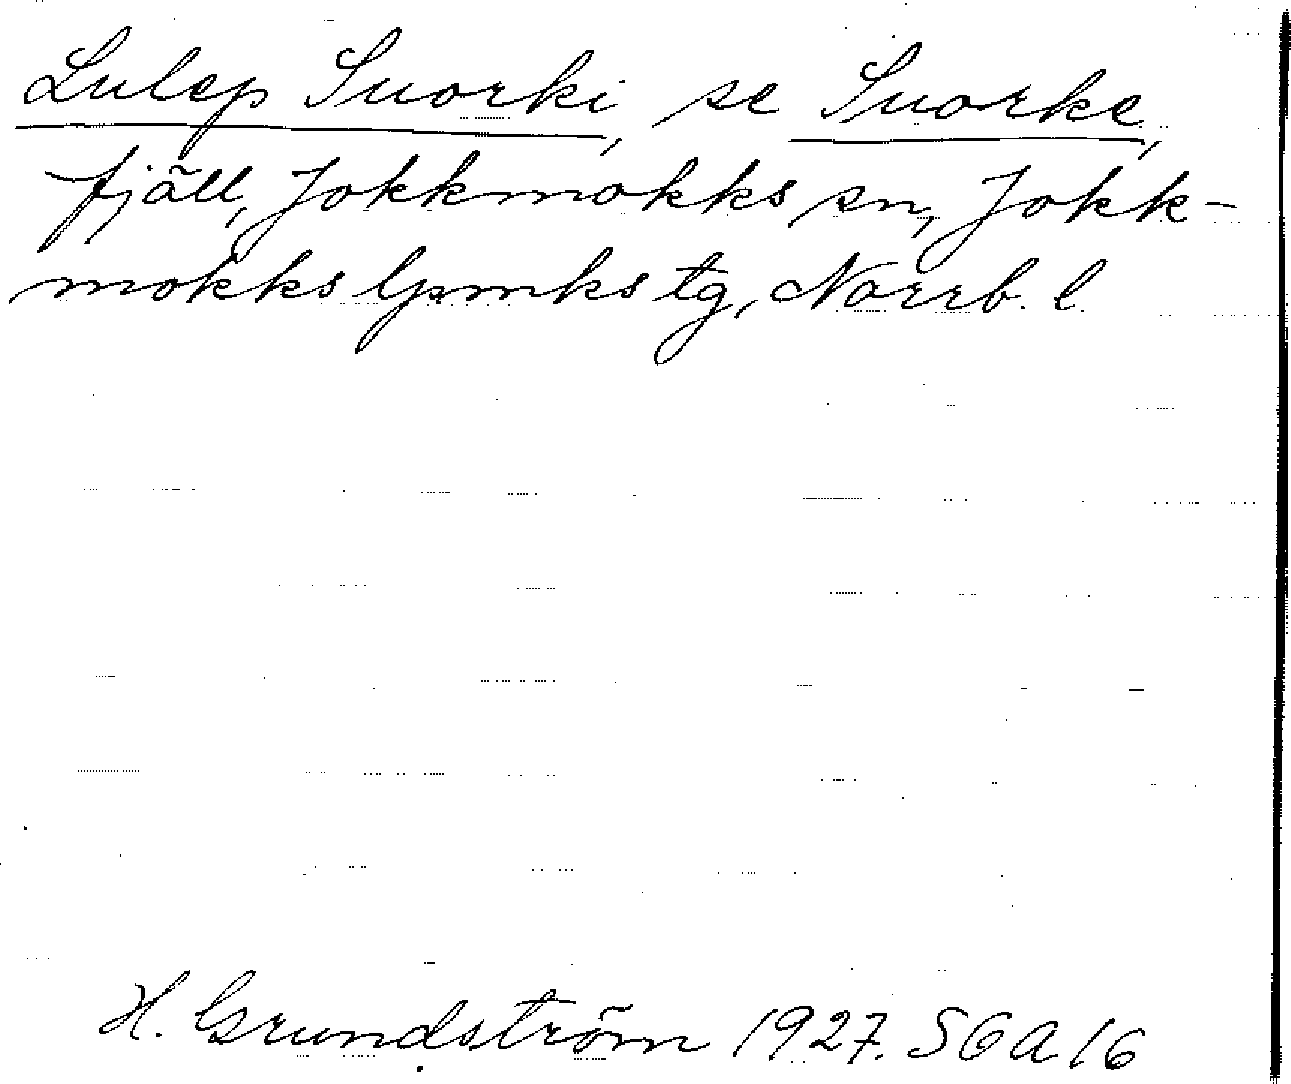 Lulep Suorki, se Suorke,
fjäll, Jokkmokks sn, Jokk-
mokks lpmks tg, Norrb. l.
H. Grundström 1927. SGA 16